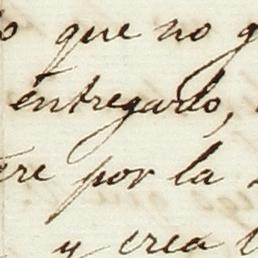 que no
entregado,
por la
y crea